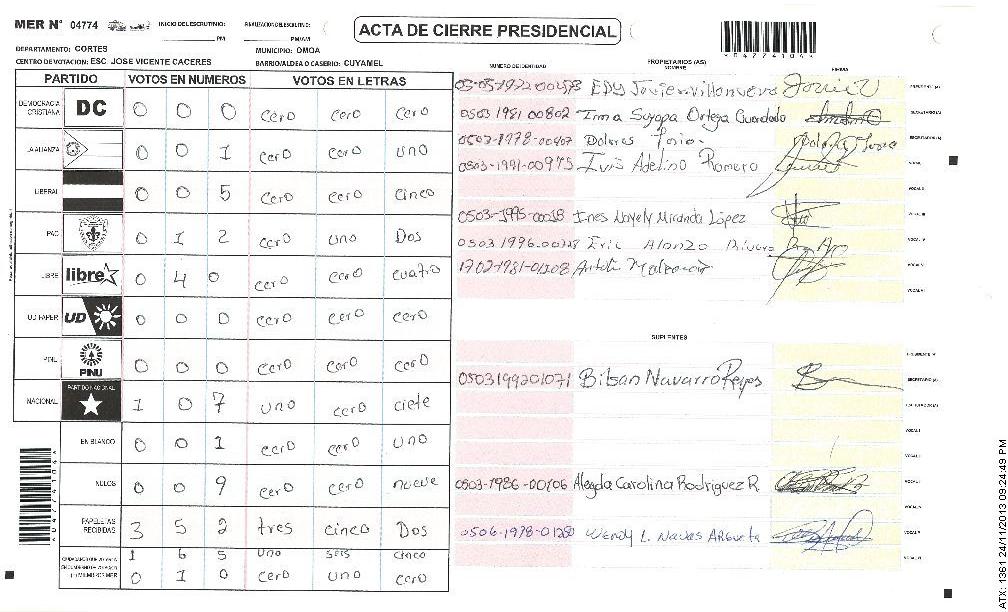 MER N° 04774 INICIO DEL ESCRUTINIO: PM FINALIZACION DEL ESCRUTINIO: PM/AM ACTA DE CIERRE PRESIDENCIAL
DEPARTAMENTO: CORTES MUNICIPIO: OMOA
CENTRO DE VOTACION: ESC JOSE VICENTE CACERES BARRIO/ALDEA O CASERIO: CUYAMEL
PARTIDO VOTOS EN NUMEROS VOTOS EN LETRAS
DEMOCRACIA CRISTIANA DC 0 0 0 cero cero cero
LA ALIANZA 0 0 1 cero cero uno
LIBERAL 0 0 5 cero cero cinco
PAC 0 1 2 cero uno Dos
LIBRE libre 0 4 0 cero cero cuatro
UD FAPER UD 0 0 0 cero cero cero
PINU PINU 0 0 0 cero cero cero
NACIONAL PARTIDO NACIONAL 1 0 7 uno cero ciete
EN BLANCO 0 0 1 cero cero uno
NULOS 0 0 9 cero cero nueve
PAPELETAS RECIBIDAS 3 5 2 tres cinco Dos
1 6 5 uno seis cinco
0 1 0 cero uno cero
NUMERO DE IDENTIDAD PROPIETARIOS (AS) NOMBRE FIRMA
EDY Javier Villanueva PRESIDENTE (A)
0503 1981 00802 Irma Suyapa Ortega Guardado SECRETARIO (A)
Dolores
0503-1991-00975 Ivis Adelino Romero VOCAL I
VOCAL II
Ines Nayely Miranda López VOCAL III
Eric Alonzo Rivera VOCAL IV
1702-1981-01208 VOCAL V
VOCAL VI
SUPLENTES
PRESIDENTE (A)
0503199201071 Bilsan Navarro Reyes SECRETARIO (A)
VOCAL I
0503-1986-00106 Alegda Carolina Rodriguez R.
0506-1978-01280 Wendy L. Navas Argueta
ATX: 1361 24/11/2013 09:24:49 PM